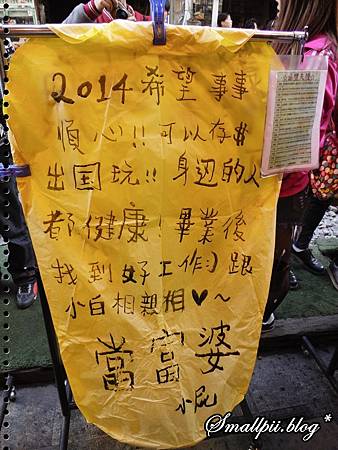 2014希望事事
順心!!可以存$
出国玩!!身边的人
都健康!畢業後
找到好工作:)跟
小白相親相♥~
當富婆
小屁
Smallpii.blog*